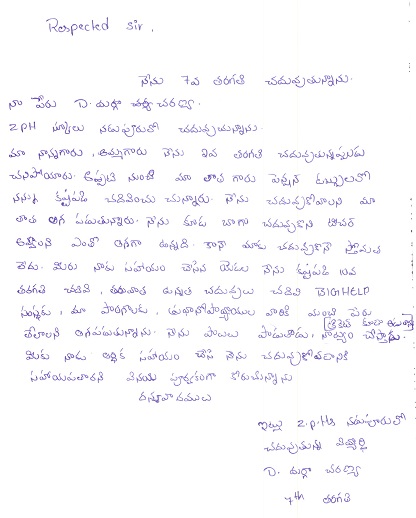 Respected sir,
నేను 7వ తరగతి చదువుతున్నాను.
నా పేరు D. దుర్గా చరణ్య.
ZPH స్కూలు నడుపూరులో చదువుతున్నాను.
మా నాన్నగారు, అమ్మగారు నేను 2వ తరగతి చదువుతున్నప్పుడు
చనిపోయారు. అప్పటి నుంచి మా తాత గారు పెన్షన్ డబ్బులతో
నన్ను కష్టపడి చదివించు చున్నారు. నేను చదువుకోవాలని మా
తాత ఆశ పడుతున్నారు. నేను కూడా బాగా చదువుకొని టీచర్
అవ్వాలని ఎంతో ఆశగా ఉన్నది. కానీ మాకు చదువుకొనే స్తోమత
లేదు. మీరు నాకు సహాయం చేసిన యెడల నేను కష్టపడి 10వ
తరగతి చదివి, తరువాత ఉన్నత చదువులు చదివి BIGHELP
సంస్థకు, మా పాఠశాలకు, ఉపాధ్యాయుల వారికి మంచి పేరు
తేవాలని ఆశపడుతున్నాను. నేను పాటలు పాడుతాను, నాట్యం చేస్తాను.
మీరు నాకు ఆర్థిక సహాయం చేసి నేను చదువుకోవడానికి
సహాయపడాలని వినయ పూర్వకంగా కోరుచున్నాను
ధన్యవాదములు
ఇట్లు Z.P.H.S నడుపూరులో
చదువుతున్న విద్యార్థి
D. దుర్గా చరణ్య
7th తరగతి